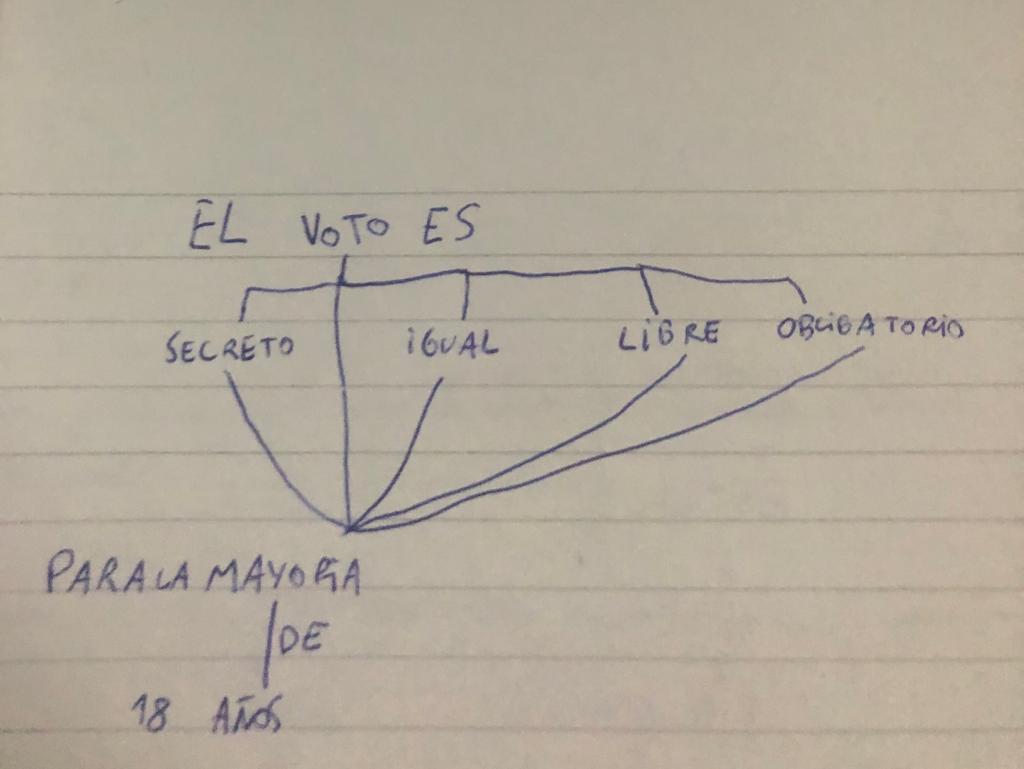 EL VOTO ES
SECRETO IGUAL LIBRE OBLIGATORIO
PARA LA MAYORIA
DE
18 AÑOS